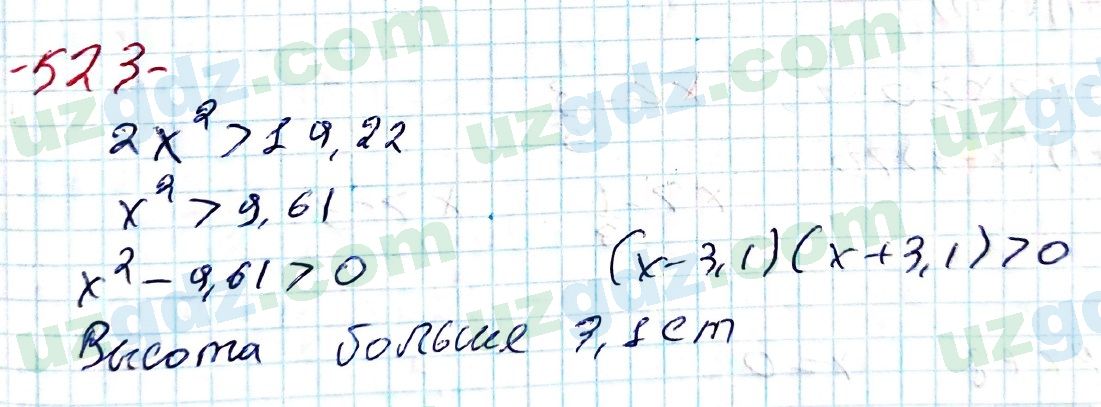 -523-
2x² > 19,22
x² > 9,61
x² - 9,61 > 0 (x-3,1)(x+3,1) > 0
Высота больше 3,1 cm
uzgdz.com
uzgdz.com
uzgdz.com
uzgdz.com
uzgdz.com
uzgdz.com